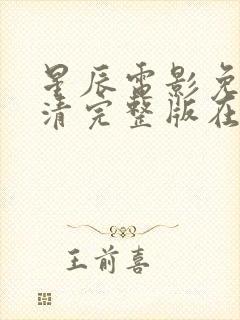 星辰电影免
清完整版在
王前喜